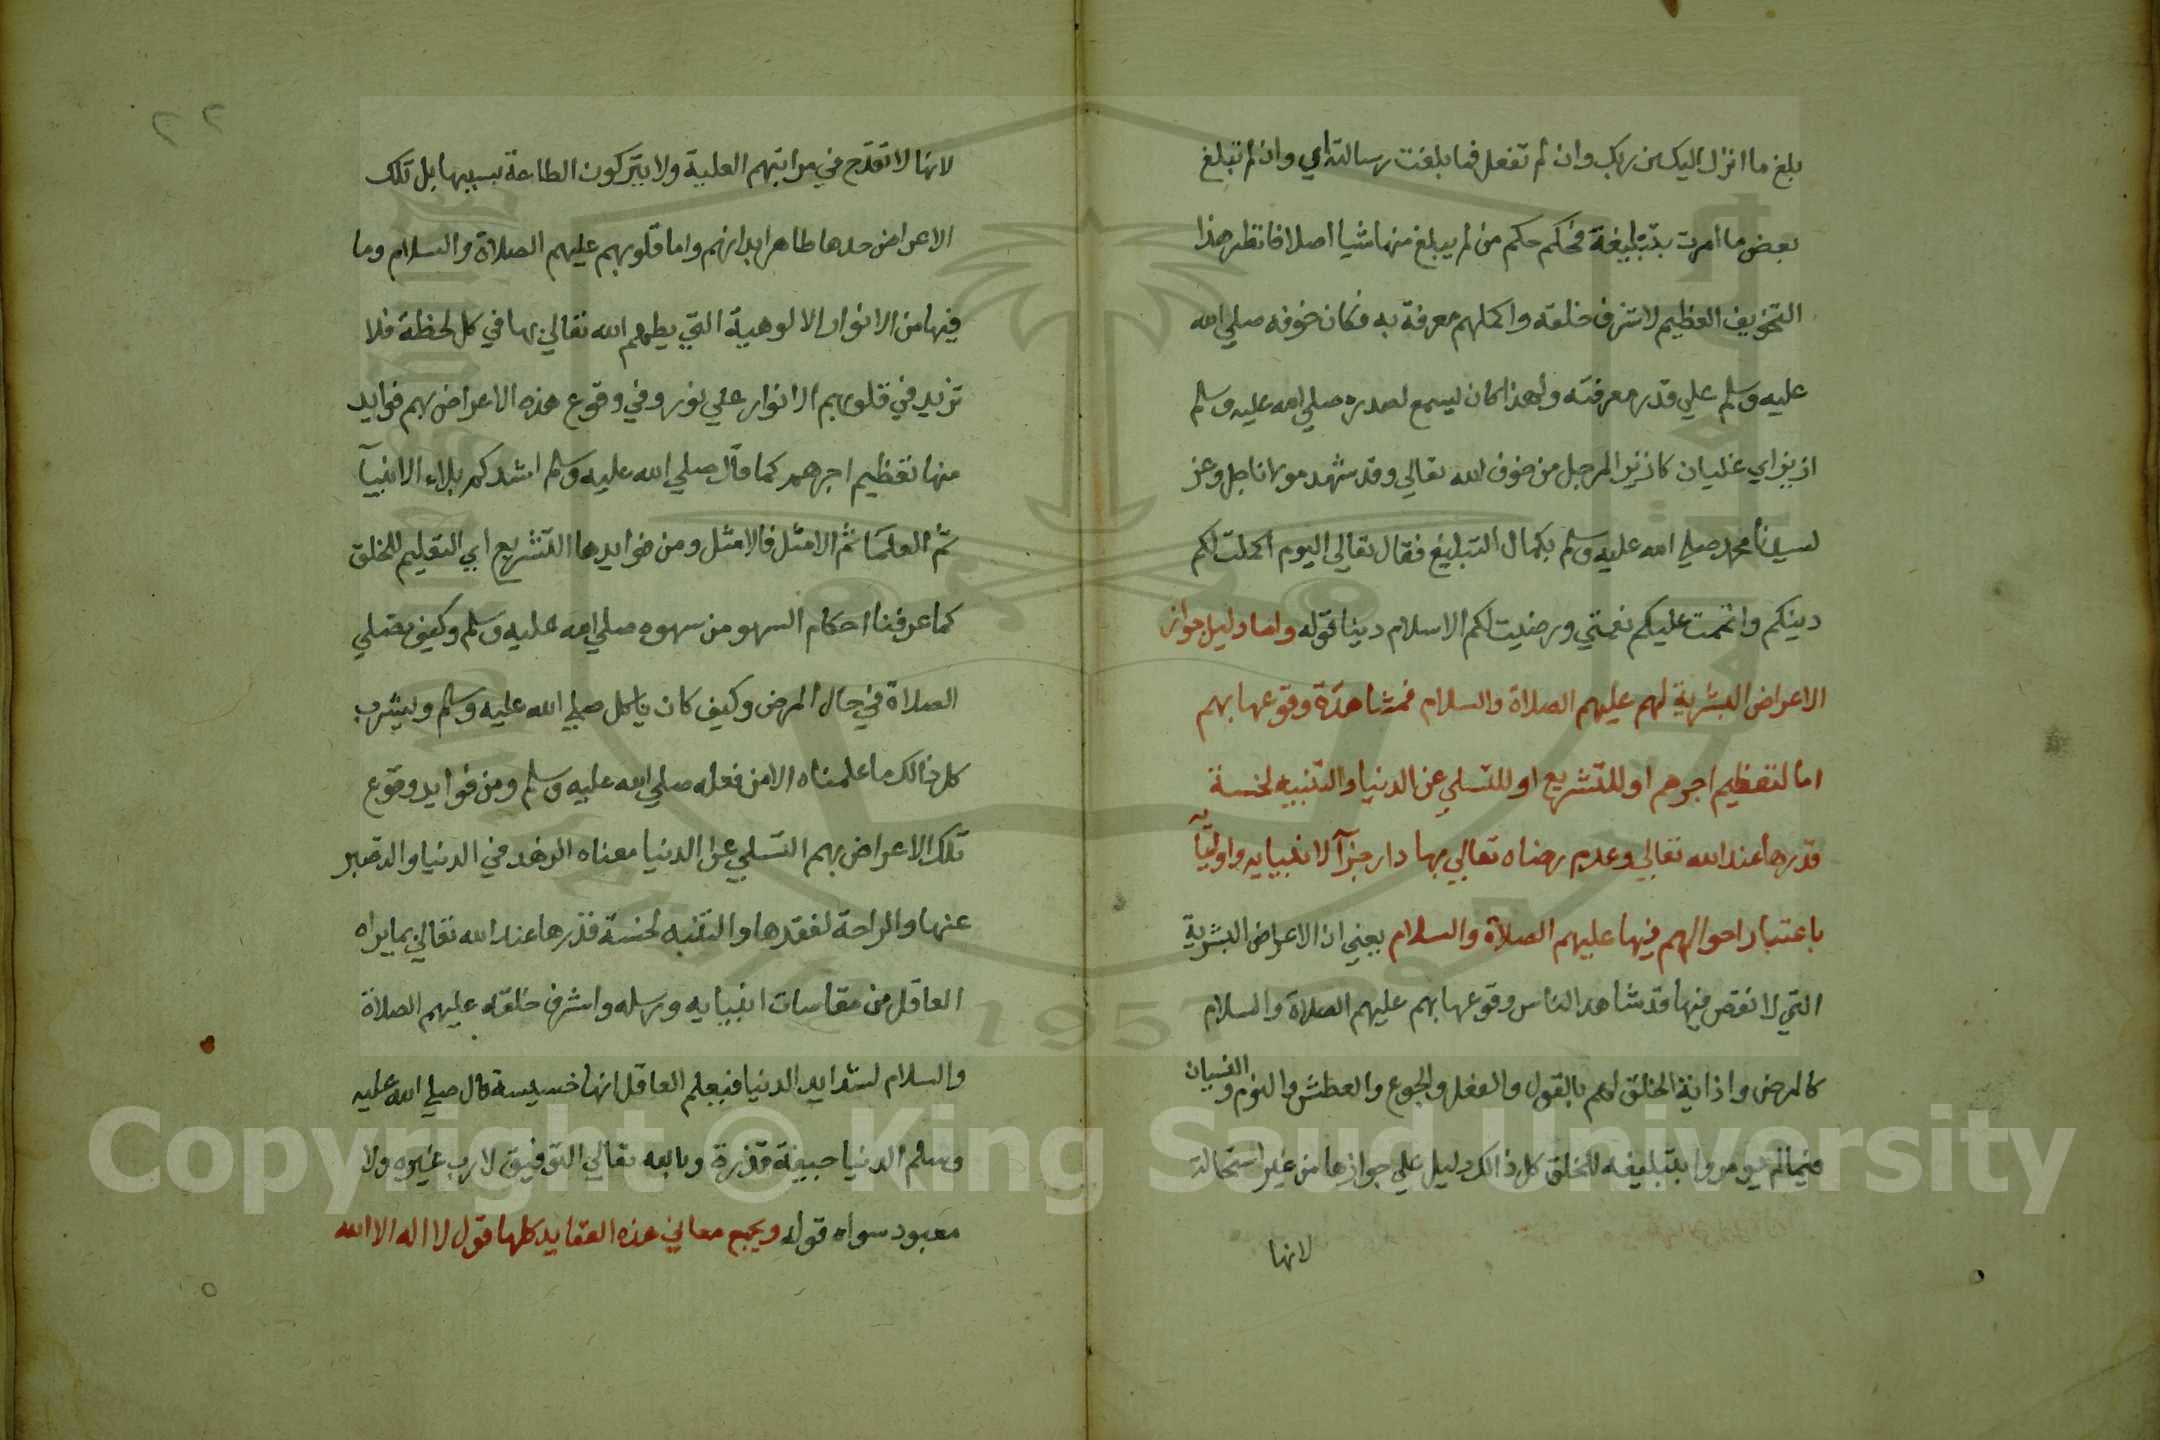 بلغ ما انزل اليك من ربك وان لم تفعل فما بلغت رسالته اي وان لم تبلغ
بعض ما امرت بتبليغة فحكم حكم من لم يبلغ منها شيا اصلا فانظر هذا
التخويف العظيم لاشرف خلقه واكملهم معرفة به فكان خوفه صلي الله
عليه وسلم علي قدر معرفته ولهذا كان ليسمع لصدره صلي الله عليه وسلم
ازيز اي غليان كازيز المرجل من خوف الله تعالي وقد شهد مولانا جل وعز
لسيدنا محمد صلي الله عليه وسلم بكمال التبليغ فقال تعالي اليوم اكملت لكم
دينكم واتممت عليكم نعمتي ورضيت لكم الاسلام دينا قوله واما دليل جواز
الاعراض البشرية لهم عليهم الصلاة والسلام فمشاهدة وقوعها بهم
اما لتعظيم اجرهم او للتشريع او للتسلي عن الدنيا والتنبيه لخسة
قدرها عند الله تعالي وعدم رضاه تعالي بها دار جزآ لانبيايه واوليآ
باعتبار احوالهم فيها عليهم الصلاة والسلام يعني ان الاعراض البشرية
التي لا نقص فيها قد شاهد الناس وقوعها بهم عليهم الصلاة والسلام
كالمرض واذاية الخلق لهم بالقول والفعل والجوع والعطش والنوم والنسيان
فيما لم يومروا بتبليغه للخلق كل ذالك دليل علي جوازها من غير استحالة
لانها
٢٢
لانها لا تقدح في مراتبهم العلية ولا يتركون الطاعة بسببها بل تلك
الاعراض حدها ظاهر ابدانهم واما قلوبهم عليهم الصلاة والسلام وما
فيها من الانوار الالوهية التي يطمهم الله تعالي بها في كل لحظة فلا
تزيد في قلوبهم الا نوار علي نور وفي وقوع هذه الاعراض بهم فوايد
منها تعظيم اجرهم كما قال صلي الله عليه وسلم اشدكم بلاء الانبيآ
ثم العلمآ ثم الامثل فالامثل ومن فوايدها التشريع اي التعليم للخلق
كما عرفنا احكام السهو من سهوه صلي الله عليه وسلم وكيف يصلي
الصلاة في حال المرض وكيف كان ياكل صلي الله عليه وسلم ويشرب
كل ذالك ما علمناه الا من فعله صلي الله عليه وسلم ومن فوايد وقوع
تلك الاعراض بهم التسلي عن الدنيا معناه الزهد في الدنيا والتصبر
عنها والراحة لفقدها والتنبه لخسة قدرها عند الله تعالي بما يراه
العاقل من مقاسات انبيايه ورسله واشرف خلقه عليهم الصلاة
والسلام لشدايد الدنيا فيعلم العاقل انها خسيسة قال صلي الله عليه
وسلم الدنيا جيفة قذرة وبالله تعالي التوفيق لا رب غيره ولا
معبود سواه قوله ويجمع معاني هذه العقايد كلها قول لا اله الا الله
1957
Copyright © King Saud University